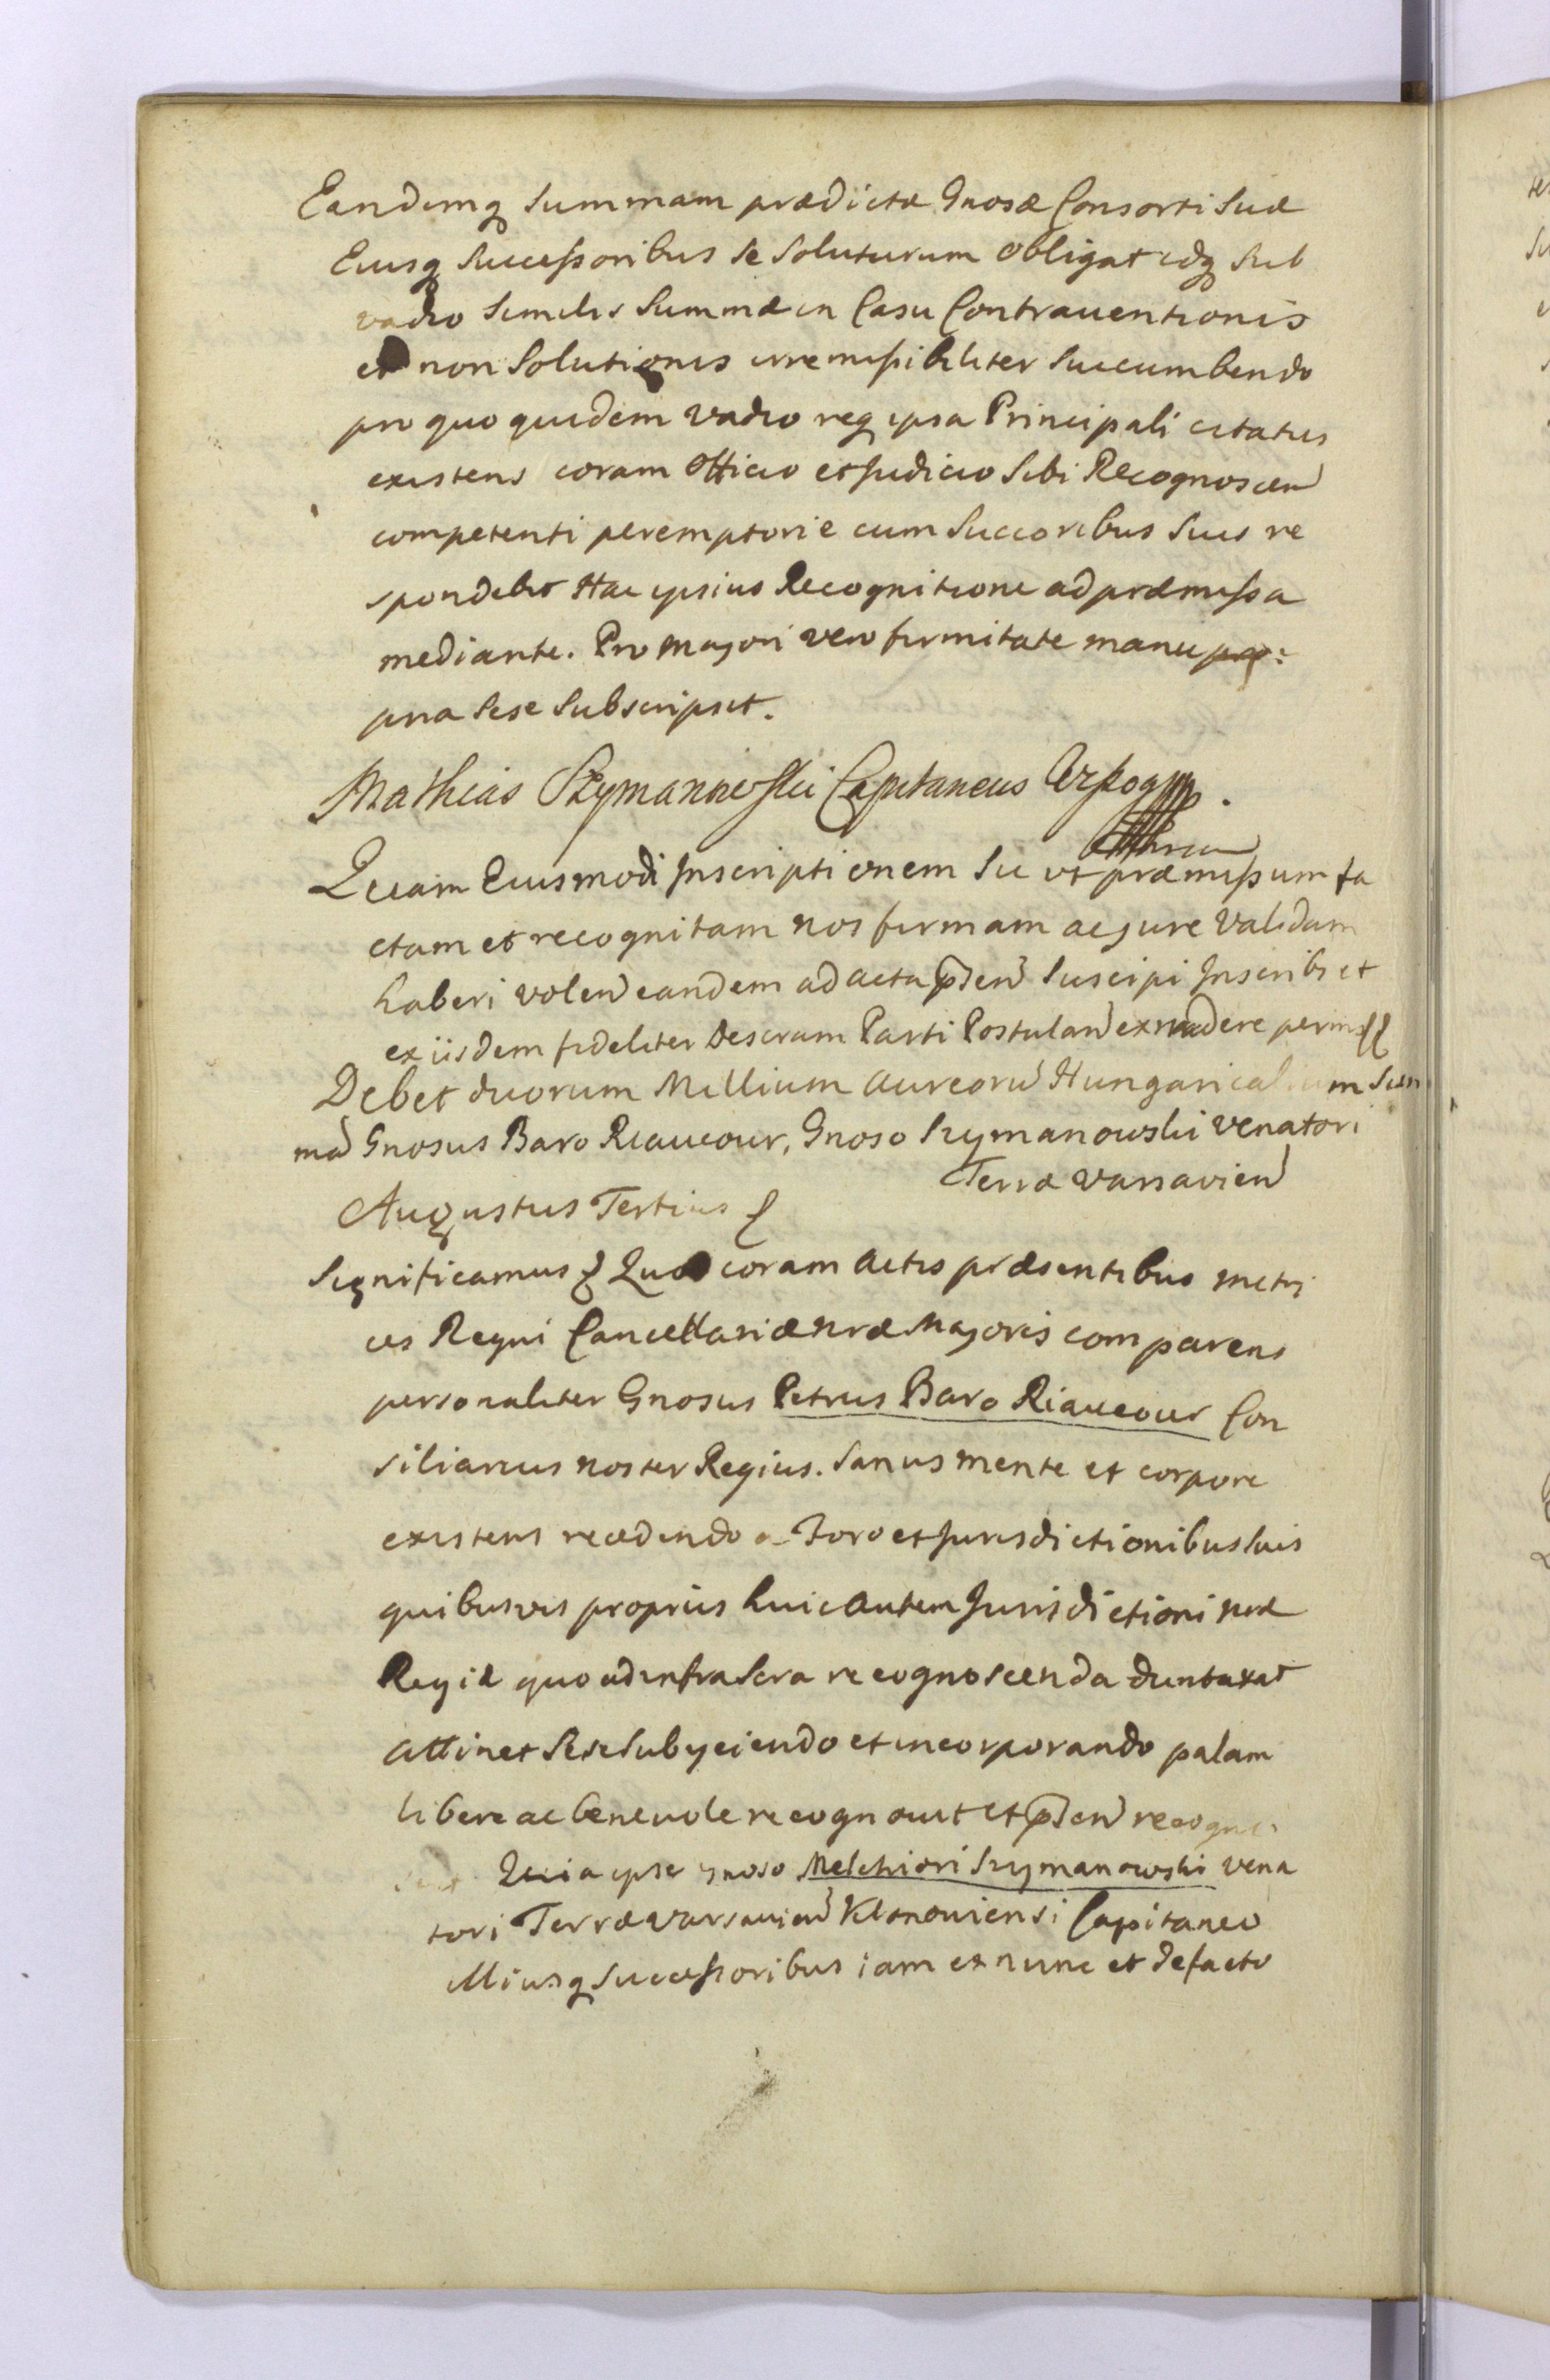 Eandemq summam prædictæ Gnosæ Consorti suæ
Eiusq successoribus se soluturum obligat idq sub
vadio similis summæ in Casu Contrauentionis
et non solutionis irremissibiliter succumbendo
pro quo quidem vadio req ipsa Principali citatus
existens coram Officio et Judicio sibi Recognoscen
competenti peremptorie cum succoribus suis re
spondebit Hac ipsius Recognitione ad præmissa
mediante. Pro majori vero firmitate manu pro:
pria sese subscripsit.
Mathias Szymanowski Capitaneus
Quam Eiusmodi Inscriptionem sic vt præmissum fa
ctam et recognitam nos firmam ac jure validam
haberi volen eandem ad acta pñsen suscipi Inscribi et
ex iisdem fideliter Descram Parti Postulan extradere permis
Debet duorum Millium aureorū Hungaricalium Sum
mā Gnosus Baro Riaucour, Gnoso Szymanowski Venatori
Terræ Varsavien
Augustus Tertius
Significamus Quod coram actis præsentibus metri
ces Regni Cancellariæ nræ Majoris comparens
personaliter Gnosus Petrus Baro Riaucour Con
siliarius noster Regius. Sanus mente et corpore
existens recedendo a Foro et Jurisdictionibus suis
quibusvis propriis huic autem Jurisdictioni nræ
Regiæ quo ad infrascra recognoscenda duntaxat
attinet sese subyciendo et incorporando palam
libere ac beneuole recognouit et pñsen recogno
scit Quia ipse gnoso Melchiori Szymanowski vena
tori Terræ Varsauien Klonouiensi Capitaneo
Illiusq successoribus iam ex nunc et de facto